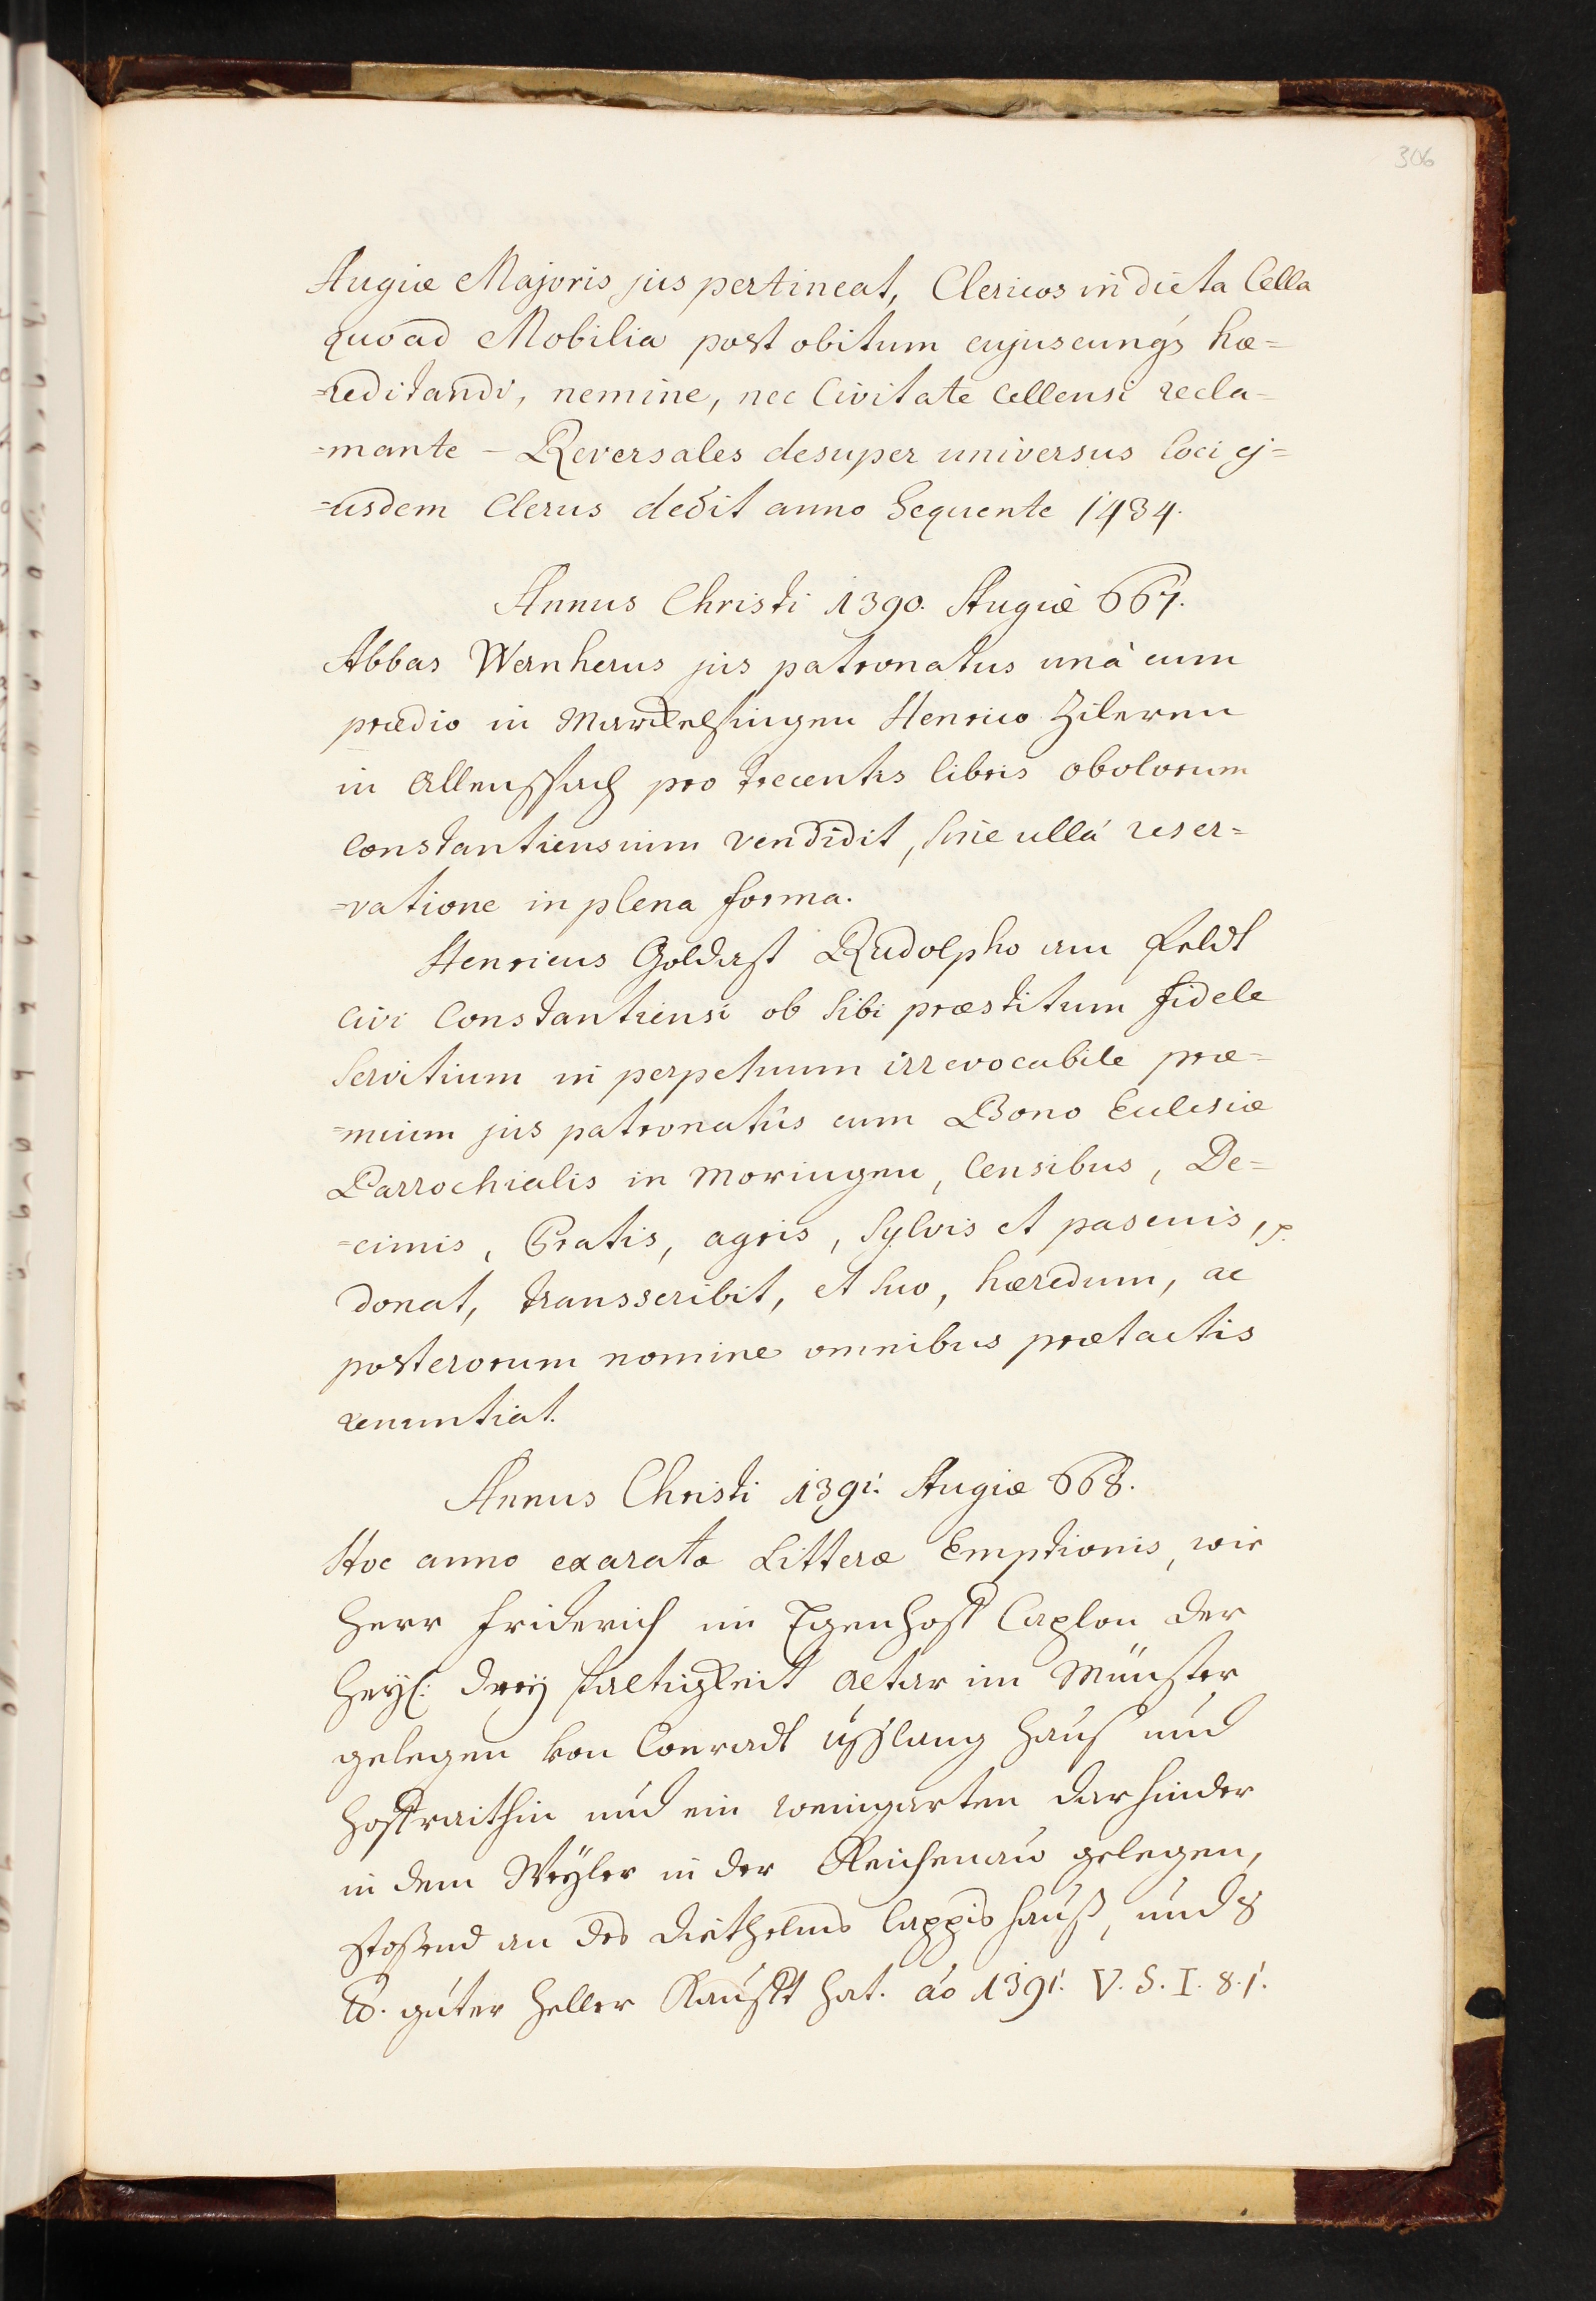 306
Augiæ Majoris jus pertineat, Clericos in dicta Cella
quoad Mobilia post obitum cujuscunq́ hæ=
=reditandi, nemine, nec Civitate Cellensi recla=
=mante – Reversales desuper universus loci ej=
=usdem Clerus dedit anno Sequente 1484.
Annus Christi 1390. Augiæ 667.
Abbas Wernherus jus patronatus unà cum
prædio in Markelfingen Henrico Zileren
in Allenspach pro trecentis libris obolorum
Constantiensium vendidit, sine ullâ reser=
=vatione in plena forma.
Henricus Goldast Rudolpho am Feldt
Civi Constantiensi ob sibi præstitum fidele
Servitium in perpetuum irrevocabile præ=
=mium jus patronatûs cum Bono Eclesiæ
Parrochialis in Moringen, Censibus, De=
=cimis, Pratis, agris, Sylvis et pascuis,
donat, transscribit, et suo, hæredum, ac
posterorum nomine omnibus prætactis
renuntiat.
Annus Christi 1391. Augiæ 668.
Hoc anno exarata Litteræ Emptionis, wie
Herr Friderich im Egenhoff Caplon der
Heyl: Dreÿfaltigkeit Altar im Münster
gelegen von Conradt Ußlang Hauß und
Hoffraithin und ein weingarten darhinder
in dem Weÿler in der Reichenau gelegen,
stoßend an des Diethelms Cappis hauß, und 8
℔. guter Heller Kaufft hat. aó 1391. V. S. I. 8. 1.